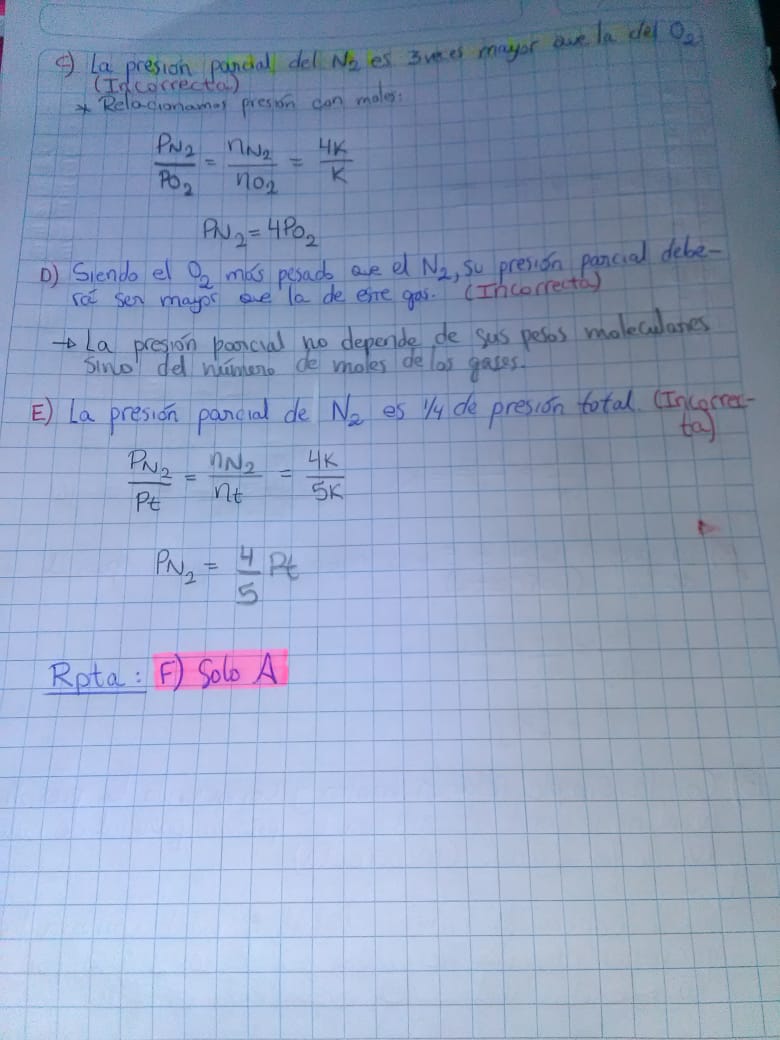 C) La presión parcial del N₂ es 3 veces mayor que la del O₂
(Incorrecta)
* Relacionamos presión con moles:
PN₂/PO₂ = nN₂/nO₂ = 4K/K
PN₂ = 4PO₂
D) Siendo el O₂ más pesado que el N₂, su presión parcial debe-
rá ser mayor que la de este gas. (Incorrecta)
→ La presión parcial no depende de sus pesos moleculares
sino del número de moles de los gases.
E) La presión parcial de N₂ es 1/4 de presión total. (Incorrec-
ta)
PN₂/Pt = nN₂/nt = 4K/5K
PN₂ = 4/5 Pt
Rpta: F) Solo A